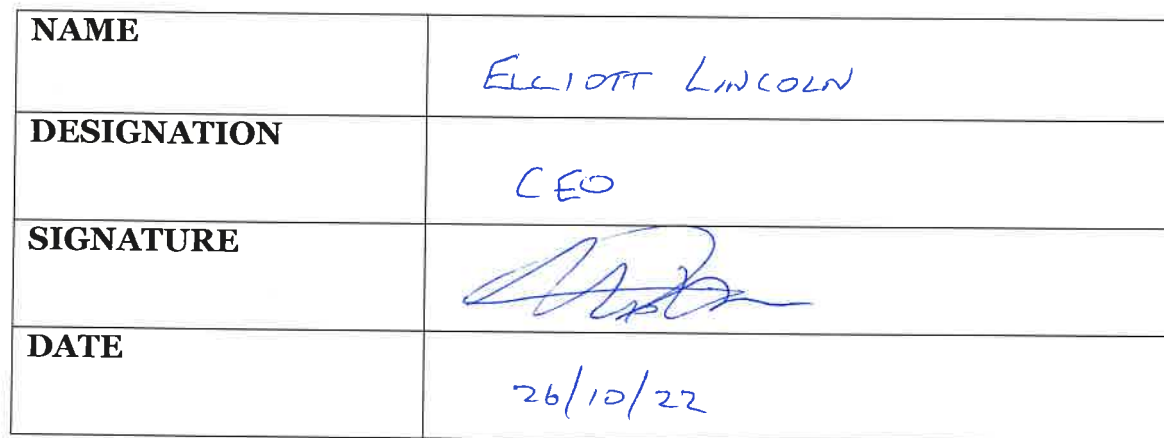 NAME
ELLIOTT LINCOLN
DESIGNATION
CEO
SIGNATURE
DATE
26/10/22